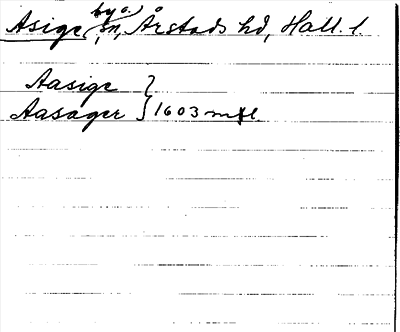 Asige, by o. sn, Årstads hd, Hall. l.
Aasige
Aasager } 1603 mfl.